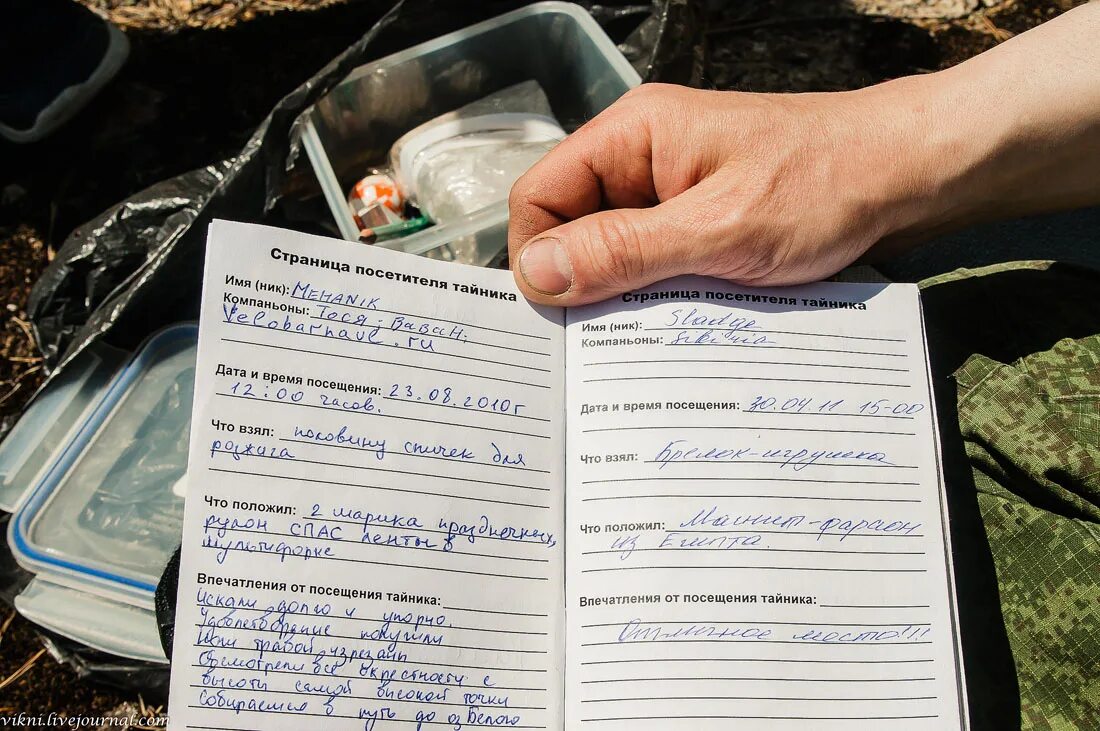 Страница посетителя тайника
Имя (ник): MEHANIK
Компаньоны: Тося; ВаВаН;
Velobarnaul.ru
Дата и время посещения: 23.08.2010г
12:00 часов.
Что взял: половину спичек для
розжига
Что положил: 2 шарика праздничных,
рулон СПАС ленты в
мультифорке
Впечатления от посещения тайника:
Искали долго и упорно.
Удовлетворение получили
Ноги травой изрезали
Осмотрели все окрестности с
высоты самой высокой точки
Собираемся в путь до оз Белого
Страница посетителя тайника
Имя (ник): Sladge
Компаньоны: Sibiria
Дата и время посещения: 30.04.11 15-00
Что взял: Брелок-игрушка
Что положил: Магнит-фараон
из Египта.
Впечатления от посещения тайника:
Отличное место!!!
vikni.livejournal.com